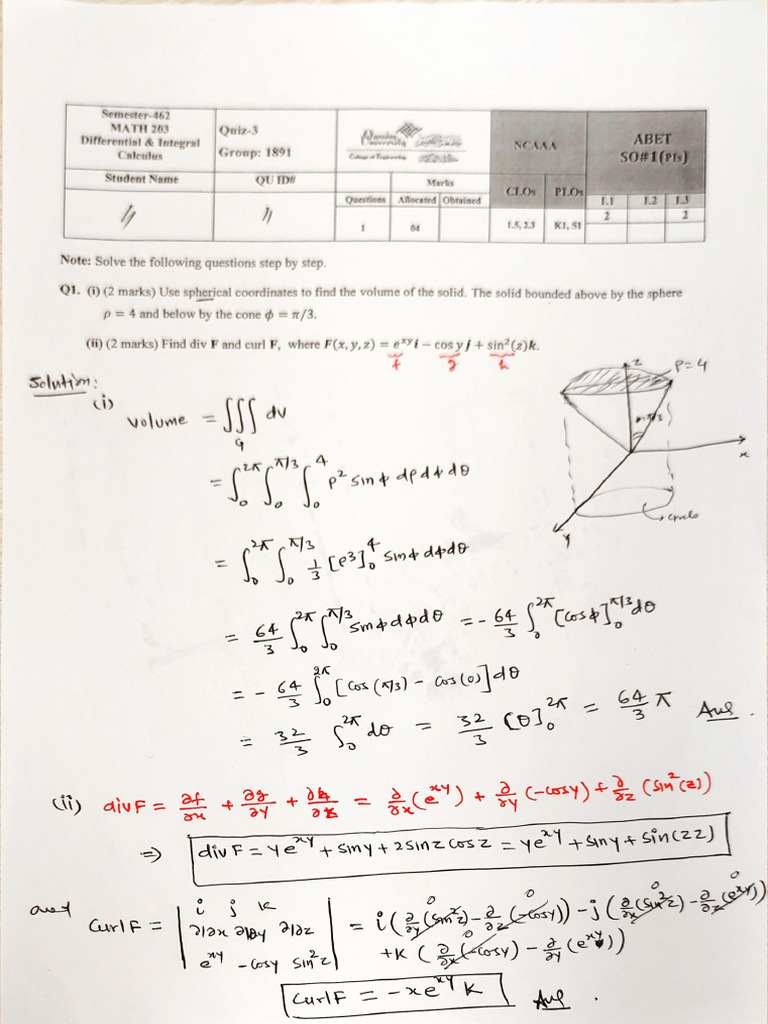 Semester-462
MATH 203
Differential & Integral
Calculus
Quiz-3
Group: 1891
Qassim University
College of Engineering
NCAAA
ABET
SO#1(PIs)
Student Name
QU ID#
Marks
CLOs
PLOs
1.1
1.2
1.3
Questions
Allocated
Obtained
2
2
1
04
1.5, 2.3
K1, S1
Note: Solve the following questions step by step.
Q1. (i) (2 marks) Use spherical coordinates to find the volume of the solid. The solid bounded above by the sphere
ρ = 4 and below by the cone ϕ = π/3.
(ii) (2 marks) Find div F and curl F, where F(x, y, z) = e^{xy} i − cos y j + sin²(z)k.
f g h
Solution:
(i) Volume = ∭_G dv
= ∫₀^{2π} ∫₀^{π/3} ∫₀^4 ρ² sinϕ dρ dϕ dθ
z
ρ=4
ϕ=π/3
x
y
circle
= ∫₀^{2π} ∫₀^{π/3} 1/3 [ρ³]₀^4 sinϕ dϕ dθ
= 64/3 ∫₀^{2π} ∫₀^{π/3} sinϕ dϕ dθ = - 64/3 ∫₀^{2π} [cosϕ]₀^{π/3} dθ
= - 64/3 ∫₀^{2π} [cos(π/3) - cos(0)] dθ
= 32/3 ∫₀^{2π} dθ = 32/3 [θ]₀^{2π} = 64/3 π Ans.
(ii) div F = ∂f/∂x + ∂g/∂y + ∂h/∂z = ∂/∂x (e^{xy}) + ∂/∂y (-cosy) + ∂/∂z (sin²(z))
⇒ div F = ye^{xy} + siny + 2sinz cosz = ye^{xy} + siny + sin(2z)
and
Curl F = | i j k | = i(∂/∂y (sin²z) - ∂/∂z (-cosy)) - j(∂/∂x (sin²z) - ∂/∂z (e^{xy}))
| ∂/∂x ∂/∂y ∂/∂z | + k(∂/∂x (-cosy) - ∂/∂y (e^{xy}))
| e^{xy} -cosy sin²z |
0 0 0 0 0
Curl F = -xe^{xy} k Ans.